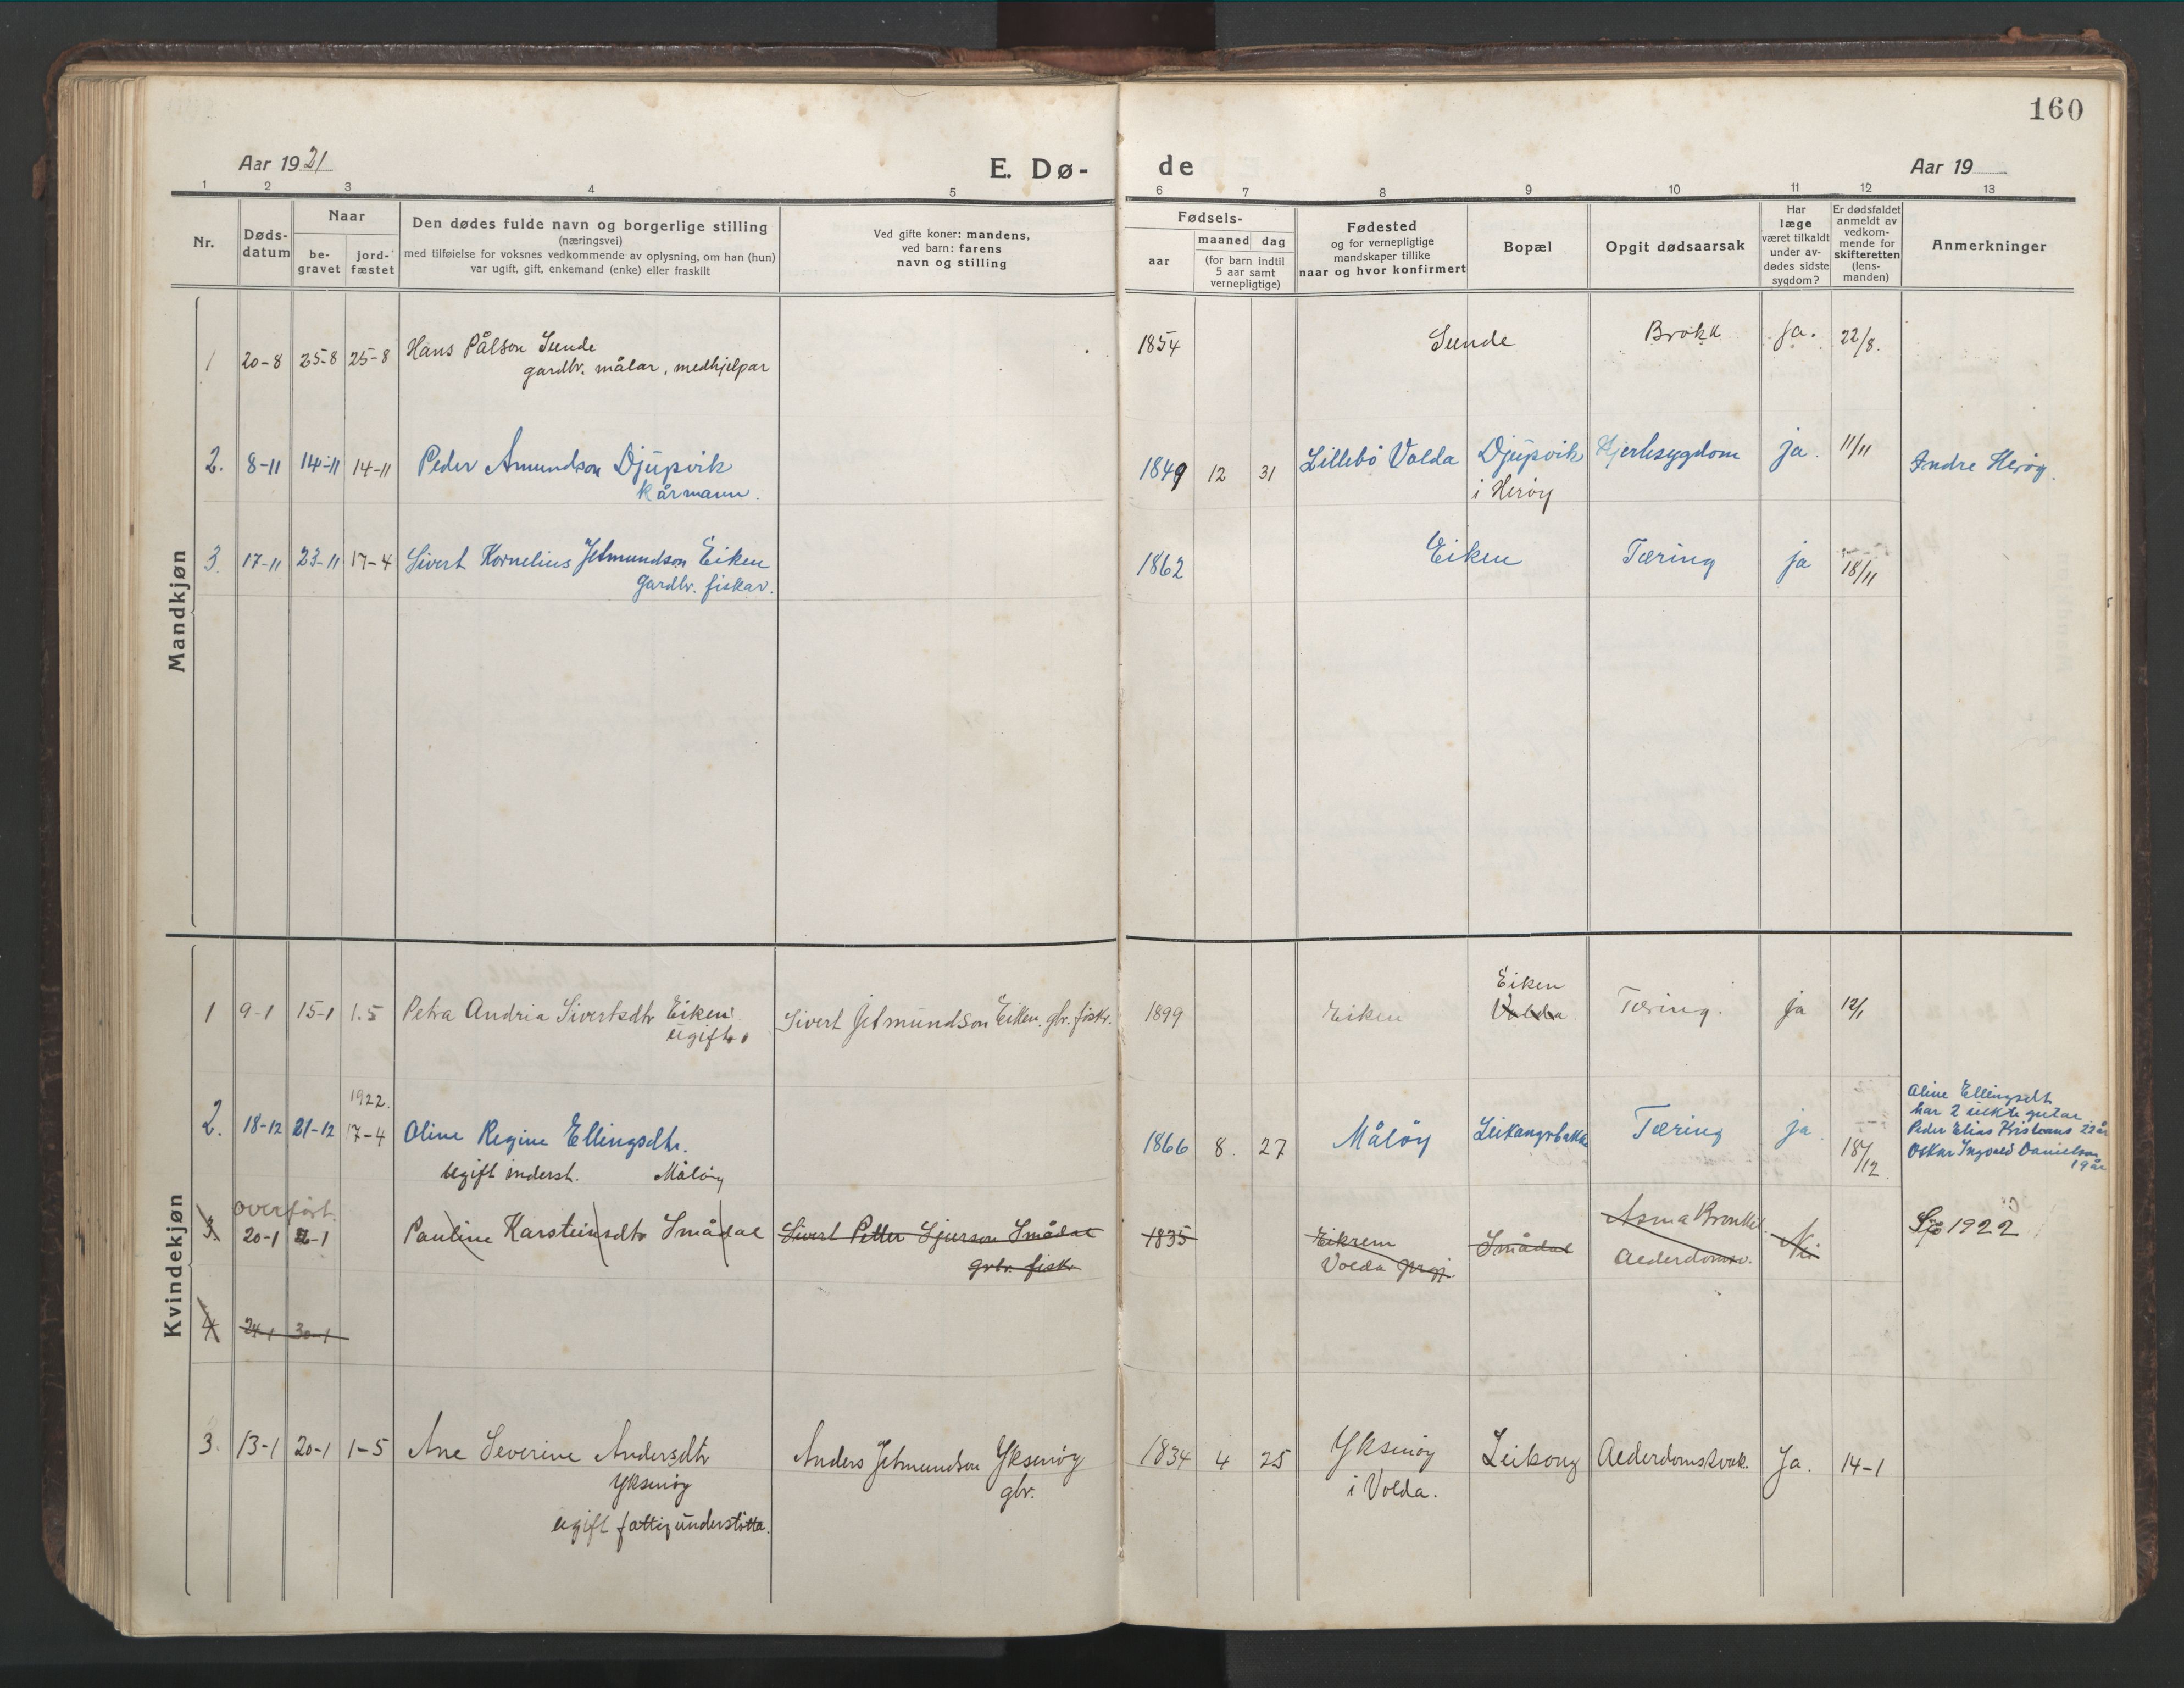 160
Aar 1921 E. Dø- de Aar 19
1 2 3 4 5 6 7 8 9 10 11 12 13
Nr.
Døds-
datum
Naar
be-
gravet
jord-
fæstet
Den dødes fulde navn og borgerlige stilling
(næringsvei)
med tilføielse for voksnes vedkommende av oplysning, om han (hun)
var ugift, gift, enkemand (enke) eller fraskilt
Ved gifte koner: mandens,
ved barn: farens
navn og stilling
Fødsels-
aar
maaned dag
(for barn indtil
5 aar samt
vernepligtige)
Fødested
og for vernepligtige
mandskaper tillike
naar og hvor konfirmert
Bopæl
Opgit dødsaarsak
Har
læge
været tilkaldt
under av-
dødes sidste
sygdom?
Er dødsfaldet
anmeldt av
vedkom-
mende for
skifteretten
(lens-
manden)
Anmerkninger
Mandkjøn
1 20-8 25-8 25-8 Hans Pålson Sunde 1854 Sunde Brokk ja. 22/8.
gardbr. målar, medhjelpar
2. 8-11 14-11 14-11 Peder Amundson Djupvik 1849 12 31 Lillebö Volda Djupvik Hjertesygdom ja. 11/11 Indre Heröy.
kårmann. i Heröy
3. 17-11 23-11 17-4 Sivert Kornelius Jetmundson Eiken 1862 Eiken Tæring ja 18/11
Gardbr. fiskar.
Kvindekjøn
Eiken
1 9-1 15-1 1.5 Petra Andria Sivertsdtr Eiken Sivert Jetmundson Eiken. gbr. fiskr. 1899 Eiken Volda Tæring. ja 12/1
ugift.
1922.
2. 18-12 21-12 17-4 Oline Regine Ellingsdtr. 1866 8. 27 Målöy Leikangsbakke Tæring ja. 18/12
ugift inderst. Målöy
Oline Ellingsdtr
har 2 uekte gutar
Peder Elias Kristians 22 år
Oskar Ingvald Danielson
19 år
overfört.
3. 20-1 -1 Pauline Karsteinsdtr Smådal Sivert Petter Sjurson Smådal 1835 Eikrem Smådal Asma Bronkit Nei Sjå 1922
gbr. fiskr Volda prgj. Aederdomsv.
4 24-1 30-1
3. 13-1 20-1 1-5 Ane Severine Andersdtr Anders Jetmundson Yksenöy 1834 4 25 Yksenöy Leikong Aederdomssvak. Ja. 14-1
Yksenöy gbr. i Volda.
ugift fattigunderstötta.